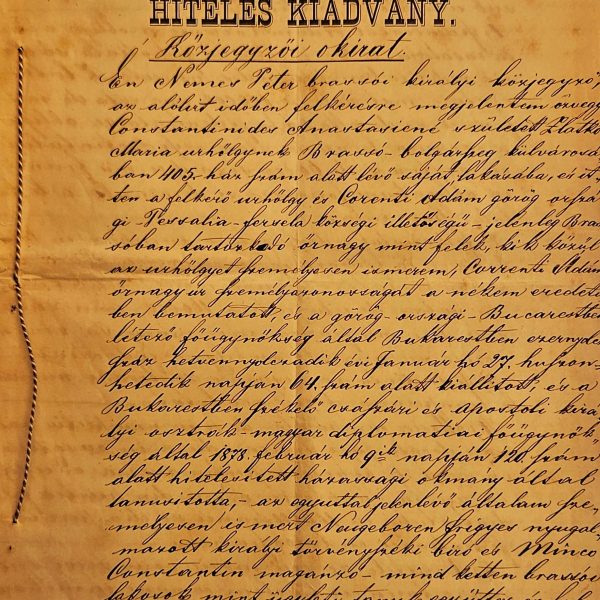 HITELES KIADVÁNY.
Közjegyzői okirat.
Én Nemes Péter brassói királyi közjegyző,
az alólirt időben felkérésre megjelentem özvegy
Constantinides Anastasiené született Zlatko
Maria urhölgynek Brassó-bolgárszeg külvárosá-
ban 405. ház szám alatt lévő saját lakásába, és itt
ten a felkérő urhölgy és Corenti Ádám görög orszá-
gi Tessalia-fersela községi illetőségű - jelenleg Bras-
sóban tartozkodó őrnagy mint felek, kik közül
az urhölgyet személyesen ismerem, Correnti Ádám
őrnagy ur személyazonosságát a nékem eredeti-
ben bemutatott, és a görög-országi-Bucarestben
létező főügynökség által Bukarestben ezernyolcz
száz hetvennyolczadik évi Január hó 27. huszon-
hetedik napján 64. szám alatt kiállított, és a
Bukarestben székelő császári és apostoli kirá-
lyi osztrák-magyar diplomatiai főügynök-
ség által 1878. február hó 9ik napján 120. szám
alatt hitelesített házassági okmány által
tanusitotta, - az egyuttal jelenlévő általam sze-
mélyesen ismert Neugeboren Frigyes nyugal-
mazott királyi törvényszéki biró és Minco
Constantin magánzó - mind ketten brassói
lakosok mint ügyleti tanuk együttes